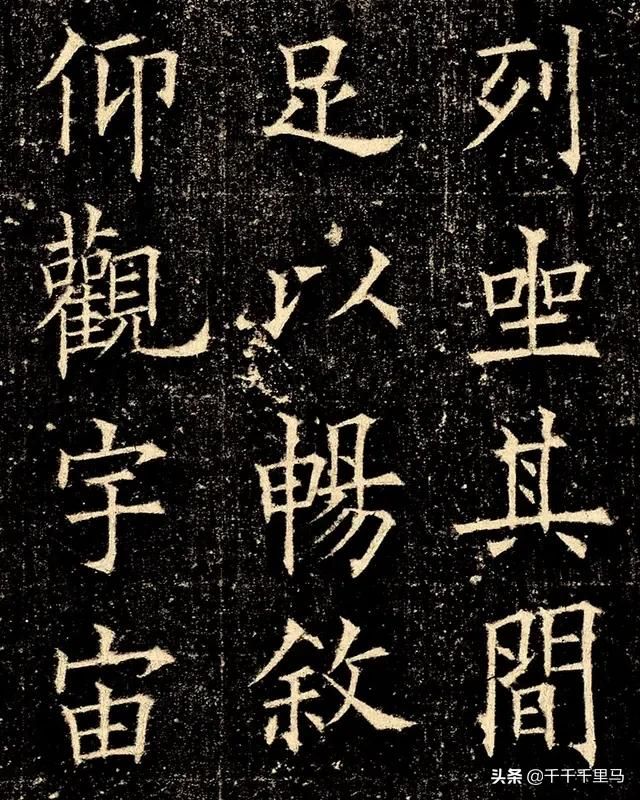 列坐其間
足以暢敘
仰觀宇宙
头条 @千千千里马